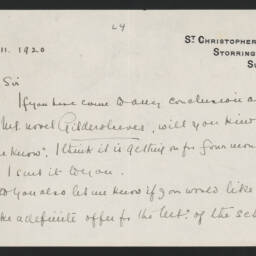 L4
ST CHRISTOPHER
STORRING
SU
11. 1920
Sir
If you have come to any conclusion a
novel Gildersleeves, will you kin
know. I think it is getting on for four mon
I sent it to you.
you also let me know if you would like
a definite offer for the of the sc